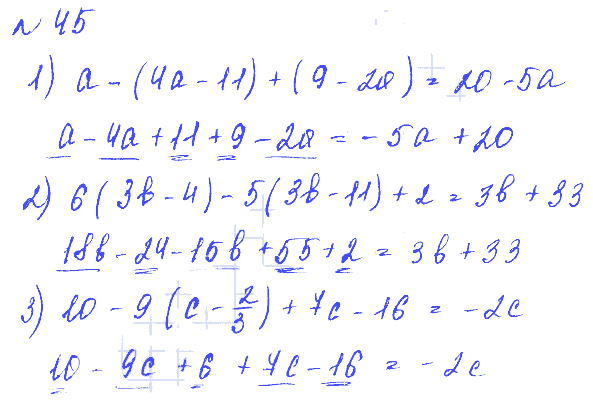 № 45
1) a - (4a - 11) + (9 - 2a) = 20 - 5a
a - 4a + 11 + 9 - 2a = - 5a + 20
2) 6(3b - 4) - 5(3b - 11) + 2 = 3b + 33
18b - 24 - 15b + 55 + 2 = 3b + 33
3) 10 - 9(c - 2/3) + 7c - 16 = - 2c
10 - 9c + 6 + 7c - 16 = - 2c